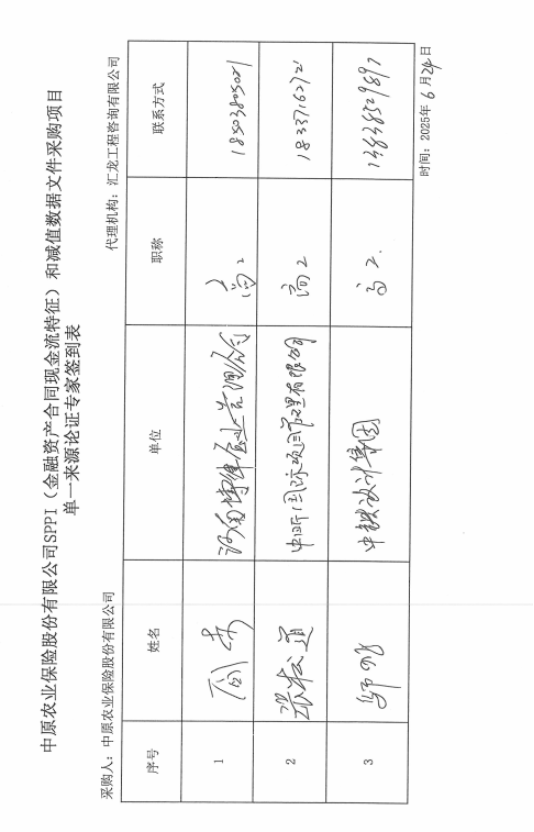 中原农业保险股份有限公司SPPI（金融资产合同现金流特征）和减值数据文件采购项目
单一来源论证专家签到表
采购人：中原农业保险股份有限公司 代理机构：汇龙工程咨询有限公司
序号 姓名 单位 职称 联系方式
1 高工 18503805021
2 中昕国际项目管理有限公司 高工 18337162721
3 中铁设计集团 高工. 13838529897
时间：2025年6月24日